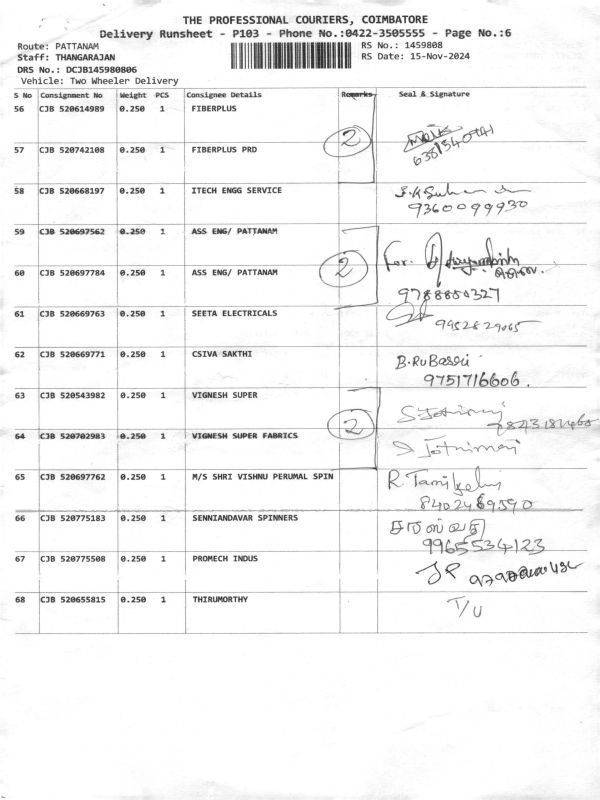 THE PROFESSIONAL COURIERS, COIMBATORE
Delivery Runsheet - P103 - Phone No.:0422-3505555 - Page No.:6
Route: PATTANAM RS No.: 1459808
Staff: THANGARAJAN RS Date: 15-Nov-2024
DRS No.: DCJB145980806
Vehicle: Two Wheeler Delivery
S No Consignment No Weight PCS Consignee Details Remarks Seal & Signature
56 CJB 520614989 0.250 1 FIBERPLUS
2
57 CJB 520742108 0.250 1 FIBERPLUS PRD
58 CJB 520668197 0.250 1 ITECH ENGG SERVICE
9360099930
59 CJB 520697562 0.250 1 ASS ENG/ PATTANAM
For.
2
60 CJB 520697784 0.250 1 ASS ENG/ PATTANAM
9788850327
61 CJB 520669763 0.250 1 SEETA ELECTRICALS
9952829065
62 CJB 520669771 0.250 1 CSIVA SAKTHI B.RuBasri
9751716606.
63 CJB 520543982 0.250 1 VIGNESH SUPER
2
64 CJB 520702983 0.250 1 VIGNESH SUPER FABRICS
65 CJB 520697762 0.250 1 M/S SHRI VISHNU PERUMAL SPIN
8402489590
66 CJB 520775183 0.250 1 SENNIANDAVAR SPINNERS சரஸ்வதி
9965534123
67 CJB 520775508 0.250 1 PROMECH INDUS JP
68 CJB 520655815 0.250 1 THIRUMORTHY T/U